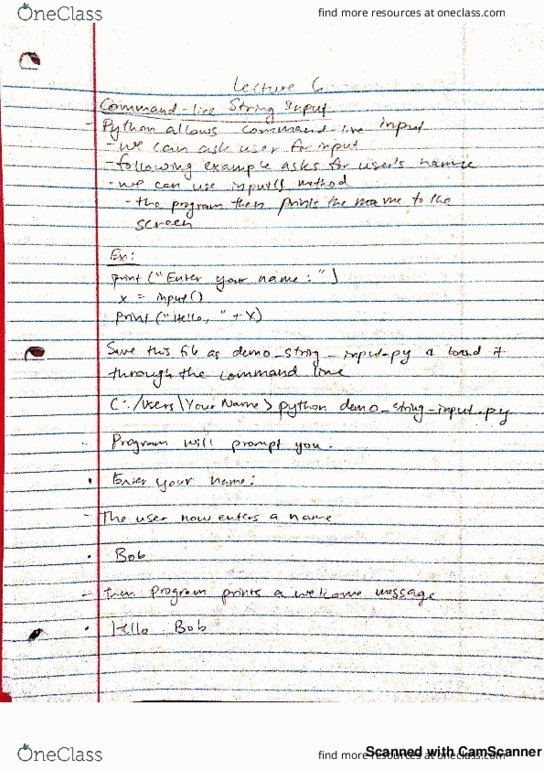 OneClass
find more resources at oneclass.com
Lecture 6
Command-line String Input
- Python allows command-line input
- we can ask user for input
- following example asks for user's name
- we can use input() method
- the program then prints the name to the
screen
Ex:
print ("Enter your name:")
x = input()
print ("Hello, " + x)
Save this file as demo_string_input.py a load it
through the command line
C:/Users\Your Name> python demo_string_input.py
- Program will prompt you.
• Enter your name:
- The user now enters a name
• Bob
- then program prints a welcome message
• Hello Bob
OneClass
find more resources at oneclass.com
Scanned with CamScanner